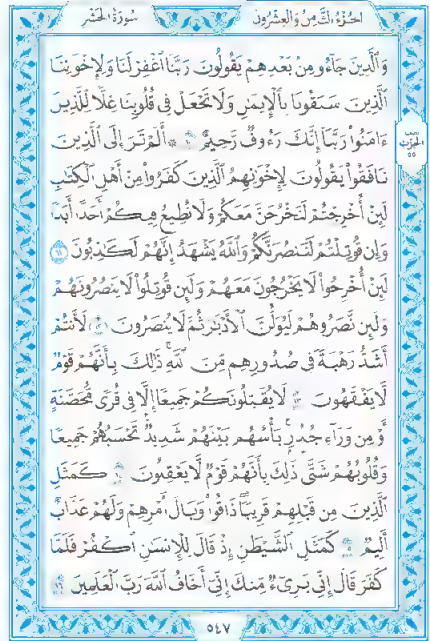 الجزء الثامن والعشرون
سورة الحشر
وَالَّذِينَ جَآءُو مِنۢ بَعْدِهِمْ يَقُولُونَ رَبَّنَا ٱغْفِرْ لَنَا وَلِإِخْوَٰنِنَا
ٱلَّذِينَ سَبَقُونَا بِٱلْإِيمَٰنِ وَلَا تَجْعَلْ فِى قُلُوبِنَا غِلًّا لِّلَّذِينَ
ءَامَنُوا۟ رَبَّنَآ إِنَّكَ رَءُوفٌ رَّحِيمٌ ١٠ ۞ أَلَمْ تَرَ إِلَى ٱلَّذِينَ
نَافَقُوا۟ يَقُولُونَ لِإِخْوَٰنِهِمُ ٱلَّذِينَ كَفَرُوا۟ مِنْ أَهْلِ ٱلْكِتَٰبِ
لَئِنْ أُخْرِجْتُمْ لَنَخْرُجَنَّ مَعَكُمْ وَلَا نُطِيعُ فِيكُمْ أَحَدًا أَبَدًا
وَإِن قُوتِلْتُمْ لَنَنصُرَنَّكُمْ وَٱللَّهُ يَشْهَدُ إِنَّهُمْ لَكَٰذِبُونَ ١١
لَئِنْ أُخْرِجُوا۟ لَا يَخْرُجُونَ مَعَهُمْ وَلَئِن قُوتِلُوا۟ لَا يَنصُرُونَهُمْ
وَلَئِن نَّصَرُوهُمْ لَيُوَلُّنَّ ٱلْأَدْبَٰرَ ثُمَّ لَا يُنصَرُونَ ١٢ لَأَنتُمْ
أَشَدُّ رَهْبَةً فِى صُدُورِهِم مِّنَ ٱللَّهِ ذَٰلِكَ بِأَنَّهُمْ قَوْمٌ
لَّا يَفْقَهُونَ ١٣ لَا يُقَٰتِلُونَكُمْ جَمِيعًا إِلَّا فِى قُرًى مُّحَصَّنَةٍ
أَوْ مِن وَرَآءِ جُدُرٍۭ بَأْسُهُم بَيْنَهُمْ شَدِيدٌ تَحْسَبُهُمْ جَمِيعًا
وَقُلُوبُهُمْ شَتَّىٰ ذَٰلِكَ بِأَنَّهُمْ قَوْمٌ لَّا يَعْقِلُونَ ١٤ كَمَثَلِ
ٱلَّذِينَ مِن قَبْلِهِمْ قَرِيبًا ذَاقُوا۟ وَبَالَ أَمْرِهِمْ وَلَهُمْ عَذَابٌ
أَلِيمٌ ١٥ كَمَثَلِ ٱلشَّيْطَٰنِ إِذْ قَالَ لِلْإِنسَٰنِ ٱكْفُرْ فَلَمَّا
كَفَرَ قَالَ إِنِّى بَرِىٓءٌ مِّنكَ إِنِّىٓ أَخَافُ ٱللَّهَ رَبَّ ٱلْعَٰلَمِينَ ١٦
نصف
الحزب
٥٥
٥٤٧